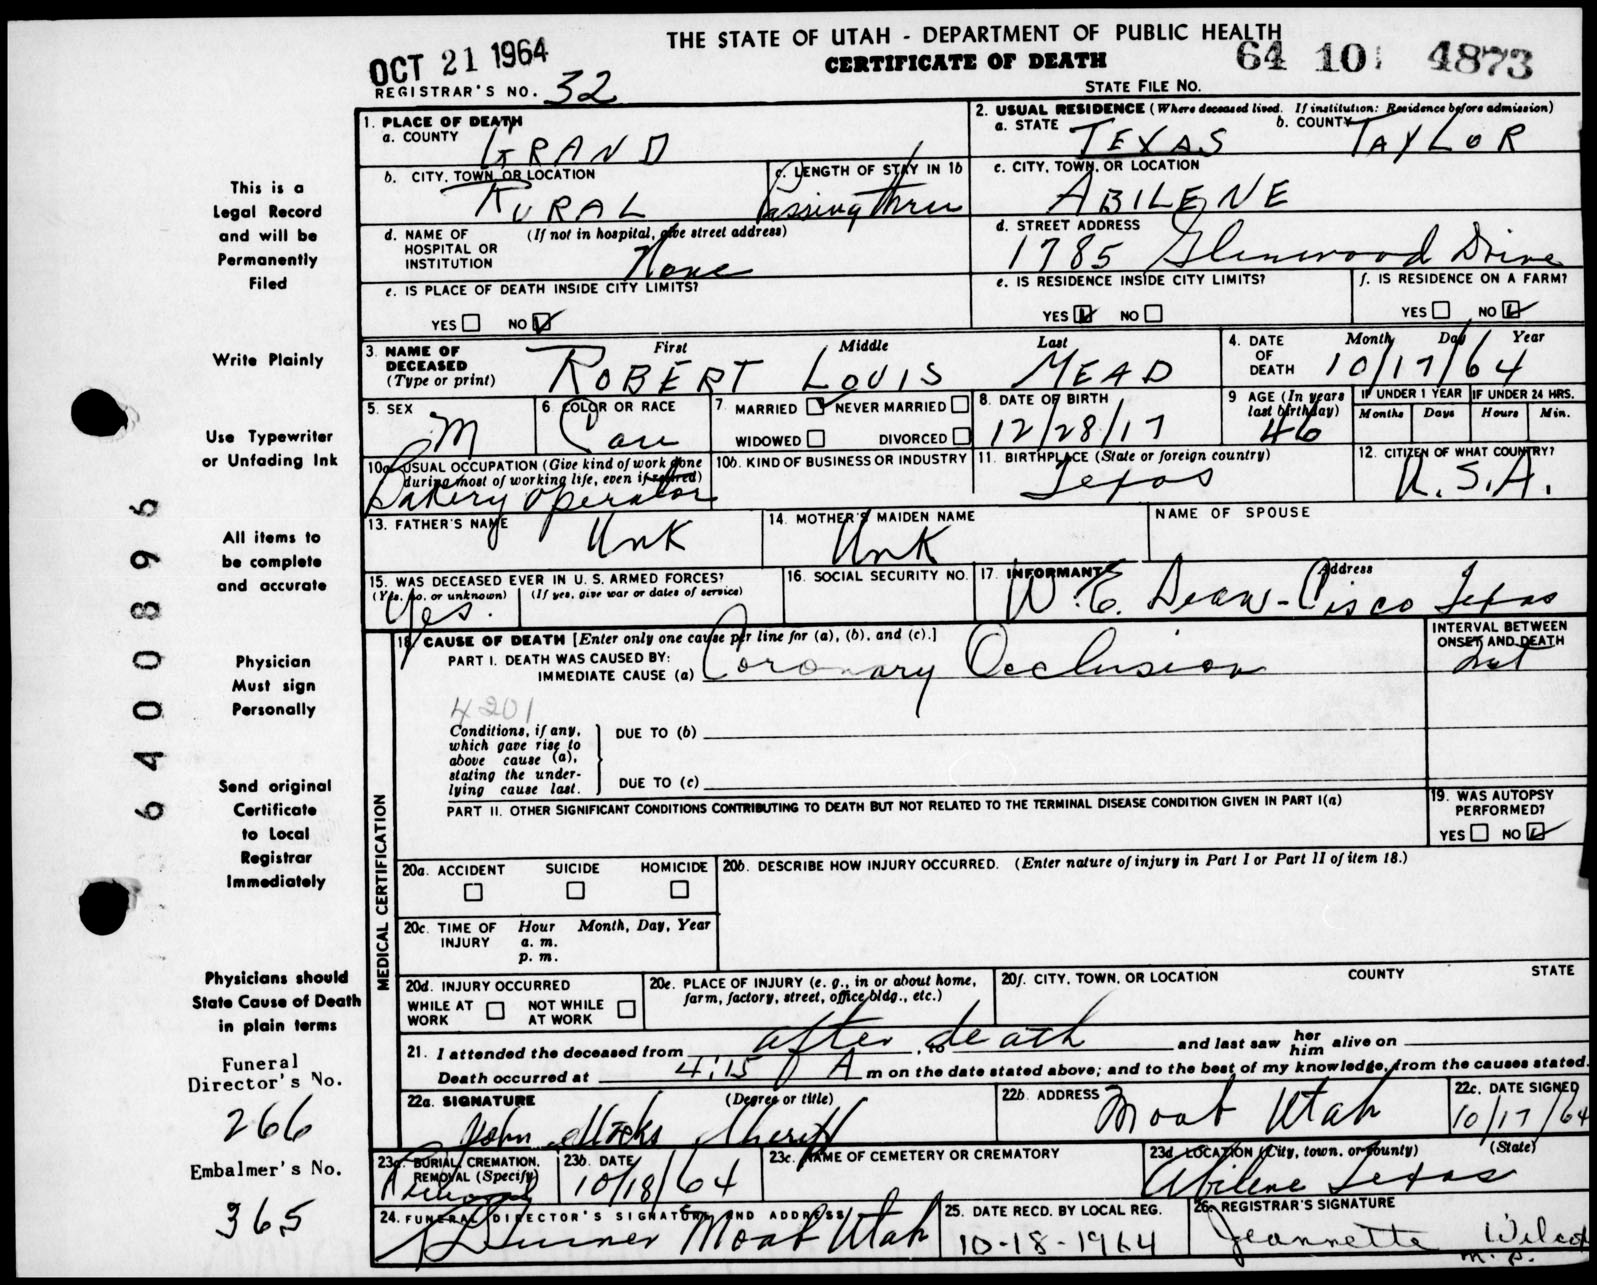 OCT 21 1964
THE STATE OF UTAH - DEPARTMENT OF PUBLIC HEALTH
CERTIFICATE OF DEATH
64 10 4873
REGISTRAR'S NO. 32
STATE FILE NO.
1. PLACE OF DEATH
a. COUNTY GRAND
2. USUAL RESIDENCE (Where deceased lived. If institution: Residence before admission)
a. STATE TEXAS b. COUNTY TAYLOR
b. CITY, TOWN, OR LOCATION RURAL
c. LENGTH OF STAY IN 1b Passing thru
c. CITY, TOWN, OR LOCATION ABILENE
d. NAME OF HOSPITAL OR INSTITUTION (If not in hospital, give street address) None
d. STREET ADDRESS 1785 Glenwood Drive
e. IS PLACE OF DEATH INSIDE CITY LIMITS?
YES NO
e. IS RESIDENCE INSIDE CITY LIMITS?
YES NO
f. IS RESIDENCE ON A FARM?
YES NO
3. NAME OF DECEASED (Type or print)
First Middle Last
ROBERT LOUIS MEAD
4. DATE OF DEATH Month Day Year
10/17/64
5. SEX M
6 COLOR OR RACE Cau
7 MARRIED NEVER MARRIED
WIDOWED DIVORCED
8. DATE OF BIRTH 12/28/17
9 AGE (In years last birthday) 46
IF UNDER 1 YEAR Months Days
IF UNDER 24 HRS. Hours Min.
10a. USUAL OCCUPATION (Give kind of work done during most of working life, even if retired)
Bakery operator
10b. KIND OF BUSINESS OR INDUSTRY
11. BIRTHPLACE (State or foreign country) Texas
12. CITIZEN OF WHAT COUNTRY? U.S.A.
13. FATHER'S NAME Unk
14. MOTHER'S MAIDEN NAME Unk
NAME OF SPOUSE
15. WAS DECEASED EVER IN U. S. ARMED FORCES?
(Yes, no, or unknown) (If yes, give war or dates of service)
Yes.
16. SOCIAL SECURITY NO.
17. INFORMANT Address
W. E. Dean - Cisco Texas
18. CAUSE OF DEATH [Enter only one cause per line for (a), (b), and (c).]
INTERVAL BETWEEN ONSET AND DEATH
PART I. DEATH WAS CAUSED BY:
IMMEDIATE CAUSE (a) Coronary Occlusion
4201
Conditions, if any, which gave rise to above cause (a), stating the under- lying cause last.
DUE TO (b)
DUE TO (c)
PART II. OTHER SIGNIFICANT CONDITIONS CONTRIBUTING TO DEATH BUT NOT RELATED TO THE TERMINAL DISEASE CONDITION GIVEN IN PART I(a)
19. WAS AUTOPSY PERFORMED?
YES NO
MEDICAL CERTIFICATION
20a. ACCIDENT SUICIDE HOMICIDE
20b. DESCRIBE HOW INJURY OCCURRED. (Enter nature of injury in Part I or Part II of item 18.)
20c. TIME OF INJURY Hour Month, Day, Year
a. m.
p. m.
20d. INJURY OCCURRED
WHILE AT WORK NOT WHILE AT WORK
20e. PLACE OF INJURY (e. g., in or about home, farm, factory, street, office bldg., etc.)
20f. CITY, TOWN, OR LOCATION COUNTY STATE
21. I attended the deceased from after , to death and last saw her him alive on
Death occurred at 4:15 A m on the date stated above; and to the best of my knowledge, from the causes stated.
22a. SIGNATURE (Degree or title)
John Stocks Sheriff
22b. ADDRESS Moab Utah
22c. DATE SIGNED 10/17/64
23a. BURIAL, CREMATION, REMOVAL (Specify) Removal
23b. DATE 10/18/64
23c. NAME OF CEMETERY OR CREMATORY
23d. LOCATION (City, town, or county) (State)
Abilene Texas
24. FUNERAL DIRECTOR'S SIGNATURE AND ADDRESS
Moab Utah
25. DATE RECD. BY LOCAL REG.
10-18-1964
26. REGISTRAR'S SIGNATURE
Jeannette Wilcox
This is a
Legal Record
and will be
Permanently
Filed
Write Plainly
Use Typewriter
or Unfading Ink
All items to
be complete
and accurate
Physician
Must sign
Personally
Send original
Certificate
to Local
Registrar
Immediately
Physicians should
State Cause of Death
in plain terms
Funeral
Director's No.
266
Embalmer's No.
365
6400896